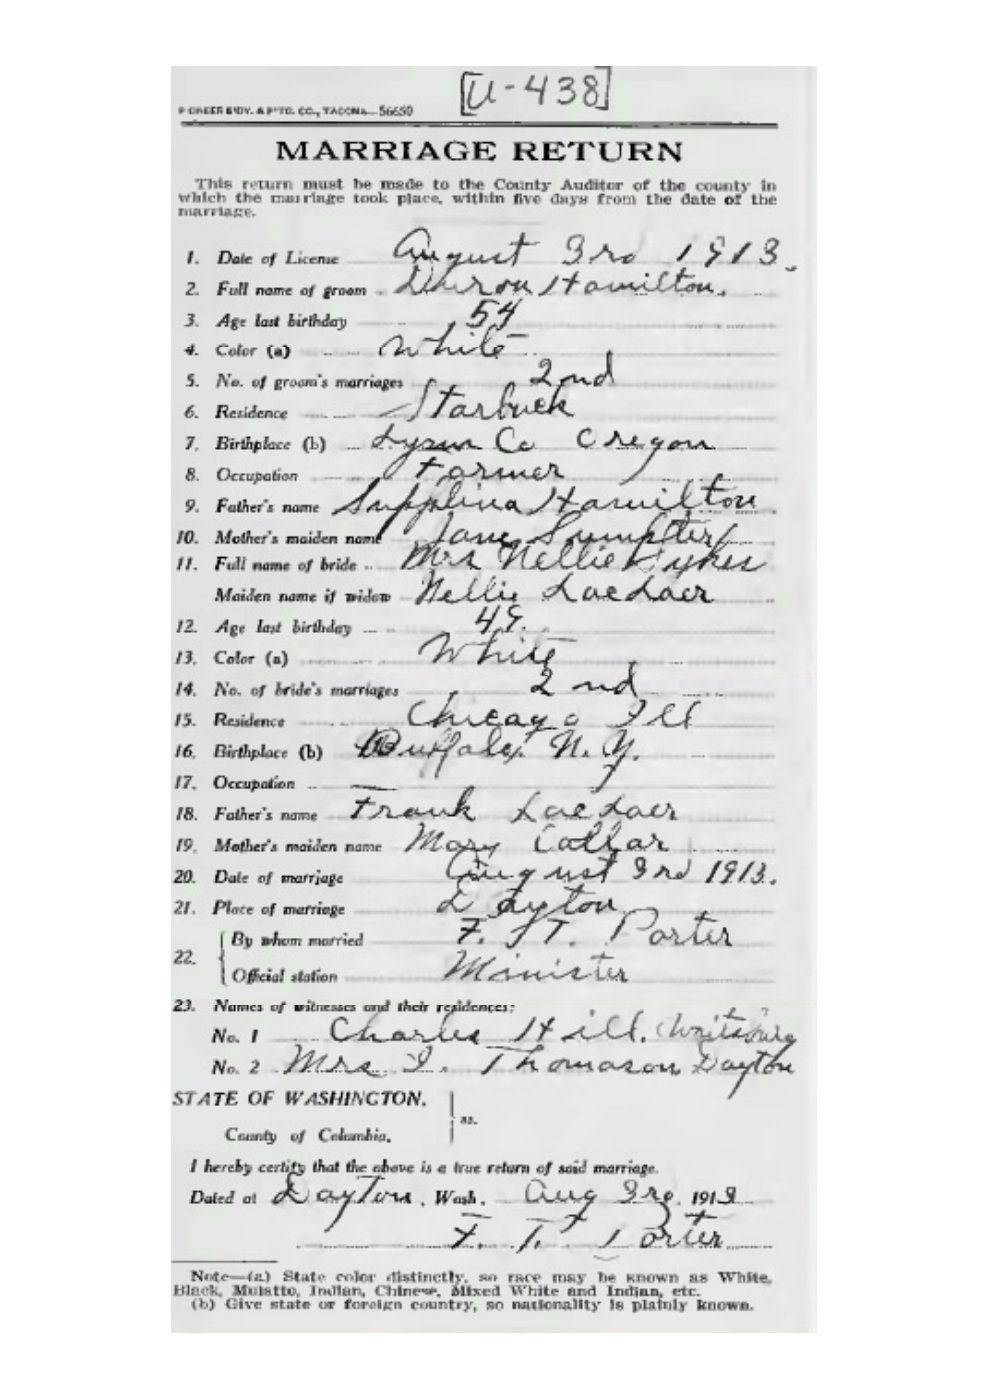 [U-438]
PIONEER BNDY. & PTG. CO., TACOMA—56650
MARRIAGE RETURN
This return must be made to the County Auditor of the county in
which the marriage took place, within five days from the date of the
marriage.
1. Date of License August 3rd 1913.
2. Full name of groom Hamilton.
3. Age last birthday 54
4. Color (a) White
5. No. of groom's marriages 2nd
6. Residence Starbuck
7. Birthplace (b) Co Oregon
8. Occupation Farmer
9. Father's name Hamilton
10. Mother's maiden name Jane Sumpter
11. Full name of bride Mrs Nellie Dykes
Maiden name if widow Nellie
12. Age last birthday 49.
13. Color (a) White
14. No. of bride's marriages 2nd
15. Residence Chicago Ill
16. Birthplace (b) Buffalo, N. Y.
17. Occupation —
18. Father's name Frank
19. Mother's maiden name Mary Collar
20. Date of marriage August 3rd 1913.
21. Place of marriage Dayton
22. By whom married F. T. Porter
Official station Minister
23. Names of witnesses and their residences:
No. 1 Charles Hill. Waitsburg
No. 2 Mrs I. Thomason Dayton
STATE OF WASHINGTON,
County of Columbia. } ss.
I hereby certify that the above is a true return of said marriage.
Dated at Dayton, Wash. Aug 3rd, 1913
F. T. Porter
Note—(a) State color distinctly, so race may be known as White,
Black, Mulatto, Indian, Chinese, Mixed White and Indian, etc.
(b) Give state or foreign country, so nationality is plainly known.